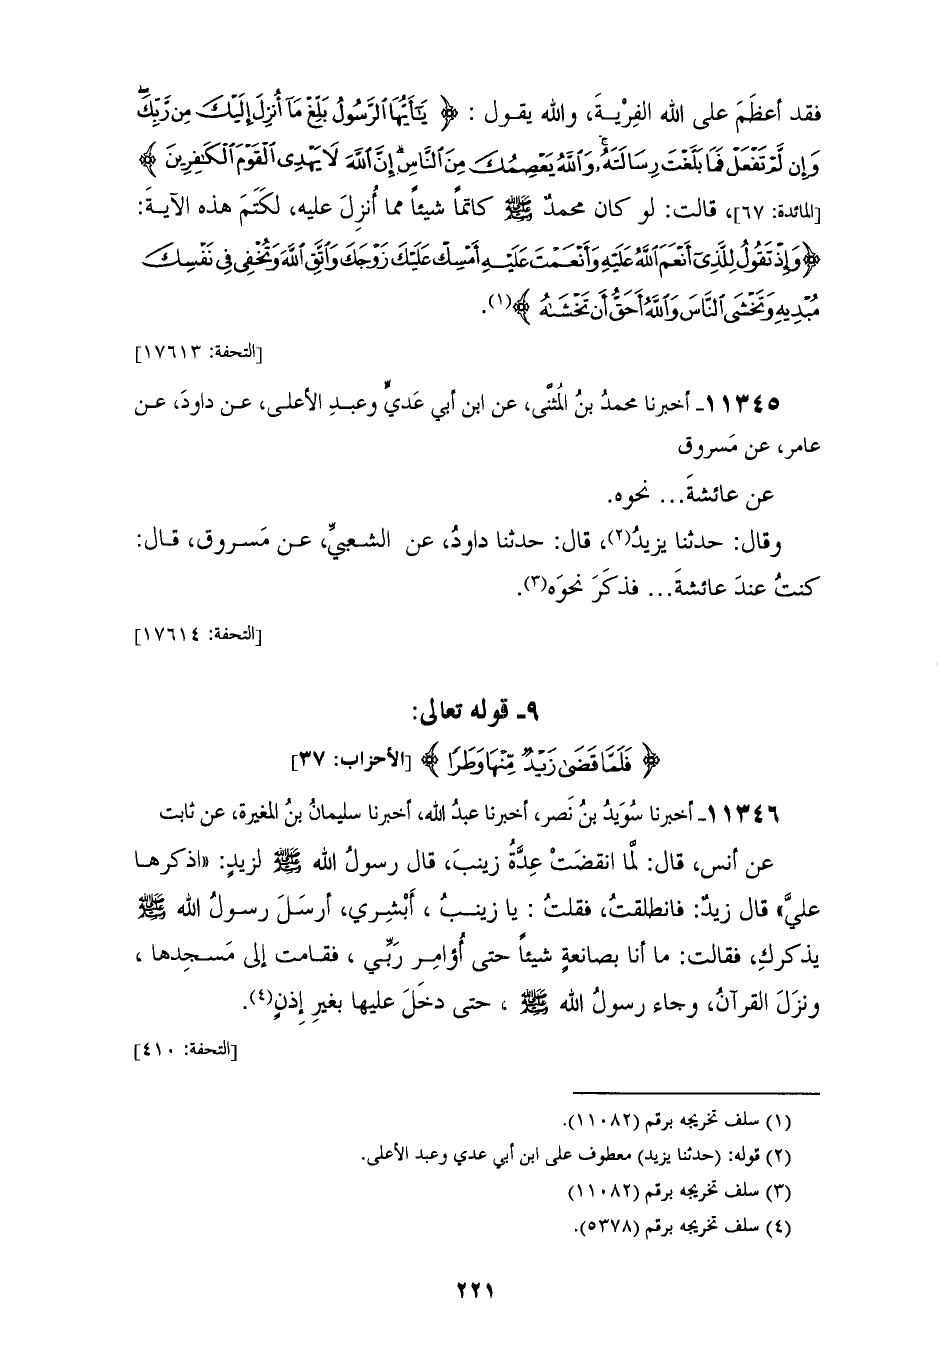 فقد أعظَمَ على الله الفِرْيـةَ، والله يقـول : ﴿ يَٰٓأَيُّهَا ٱلرَّسُولُ بَلِّغْ مَآ أُنزِلَ إِلَيْكَ مِن رَّبِّكَۖ
وَإِن لَّمْ تَفْعَلْ فَمَا بَلَّغْتَ رِسَالَتَهُۥۚ وَٱللَّهُ يَعْصِمُكَ مِنَ ٱلنَّاسِۗ إِنَّ ٱللَّهَ لَا يَهْدِى ٱلْقَوْمَ ٱلْكَٰفِرِينَ ﴾
[المائدة: ٦٧]، قالت: لو كان محمدٌ ﷺ كاتماً شيئاً مما أُنزلَ عليه، لكَتَمَ هذه الآيـة:
﴿وَإِذْ تَقُولُ لِلَّذِىٓ أَنْعَمَ ٱللَّهُ عَلَيْهِ وَأَنْعَمْتَ عَلَيْهِ أَمْسِكْ عَلَيْكَ زَوْجَكَ وَٱتَّقِ ٱللَّهَ وَتُخْفِى فِى نَفْسِكَ
مُبْدِيهِ وَتَخْشَى ٱلنَّاسَ وَٱللَّهُ أَحَقُّ أَن تَخْشَىٰهُ ﴾(١).
[التحفة: ١٧٦١٣]
١١٣٤٥ـ أخبرنا محمدُ بنُ المُثنَّى، عن ابن أبي عَديٍّ وعبـدِ الأعلـى، عـن داودَ، عـن
عامر، عن مَسروق
عن عائشةَ... نحوه.
وقال: حدثنا يزيدُ(٢)، قال: حدثنا داودُ، عن الشـعبيِّ، عـن مَسـروق، قـال:
كنتُ عندَ عائشةَ... فذكَرَ نحوَه(٣).
[التحفة: ١٧٦١٤]
٩ـ قوله تعالى:
﴿ فَلَمَّا قَضَىٰ زَيْدٌ مِّنْهَا وَطَرًا ﴾ [الأحزاب: ٣٧]
١١٣٤٦ـ أخبرنا سُوَيدُ بنُ نَصر، أخبرنا عبدُ الله، أخبرنا سليمانُ بنُ المغيرة، عن ثابت
عن أنس، قال: لمَّا انقضَتْ عِدَّةُ زينبَ، قال رسولُ الله ﷺ لزيدٍ: «اذكرهـا
عليَّ» قال زيدٌ: فانطلقتُ، فقلتُ : يا زينـبُ ، أَبْشِري، أرسَـلَ رسـولُ الله ﷺ
يذكركِ، فقالت: ما أنا بصانعةٍ شيئاً حتى أُؤامِـرَ رَبِّـي ، فقـامت إلى مَسـجِدها ،
ونزَلَ القرآنُ، وجاء رسولُ الله ﷺ ، حتى دخَلَ عليها بغيرِ إذنٍ(٤).
[التحفة: ٤١٠]
(١) سلف تخريجه برقم (١١٠٨٢).
(٢) قوله: (حدثنا يزيد) معطوف على ابن أبي عدي وعبد الأعلى.
(٣) سلف تخريجه برقم (١١٠٨٢)
(٤) سلف تخريجه برقم (٥٣٧٨).
٢٢١